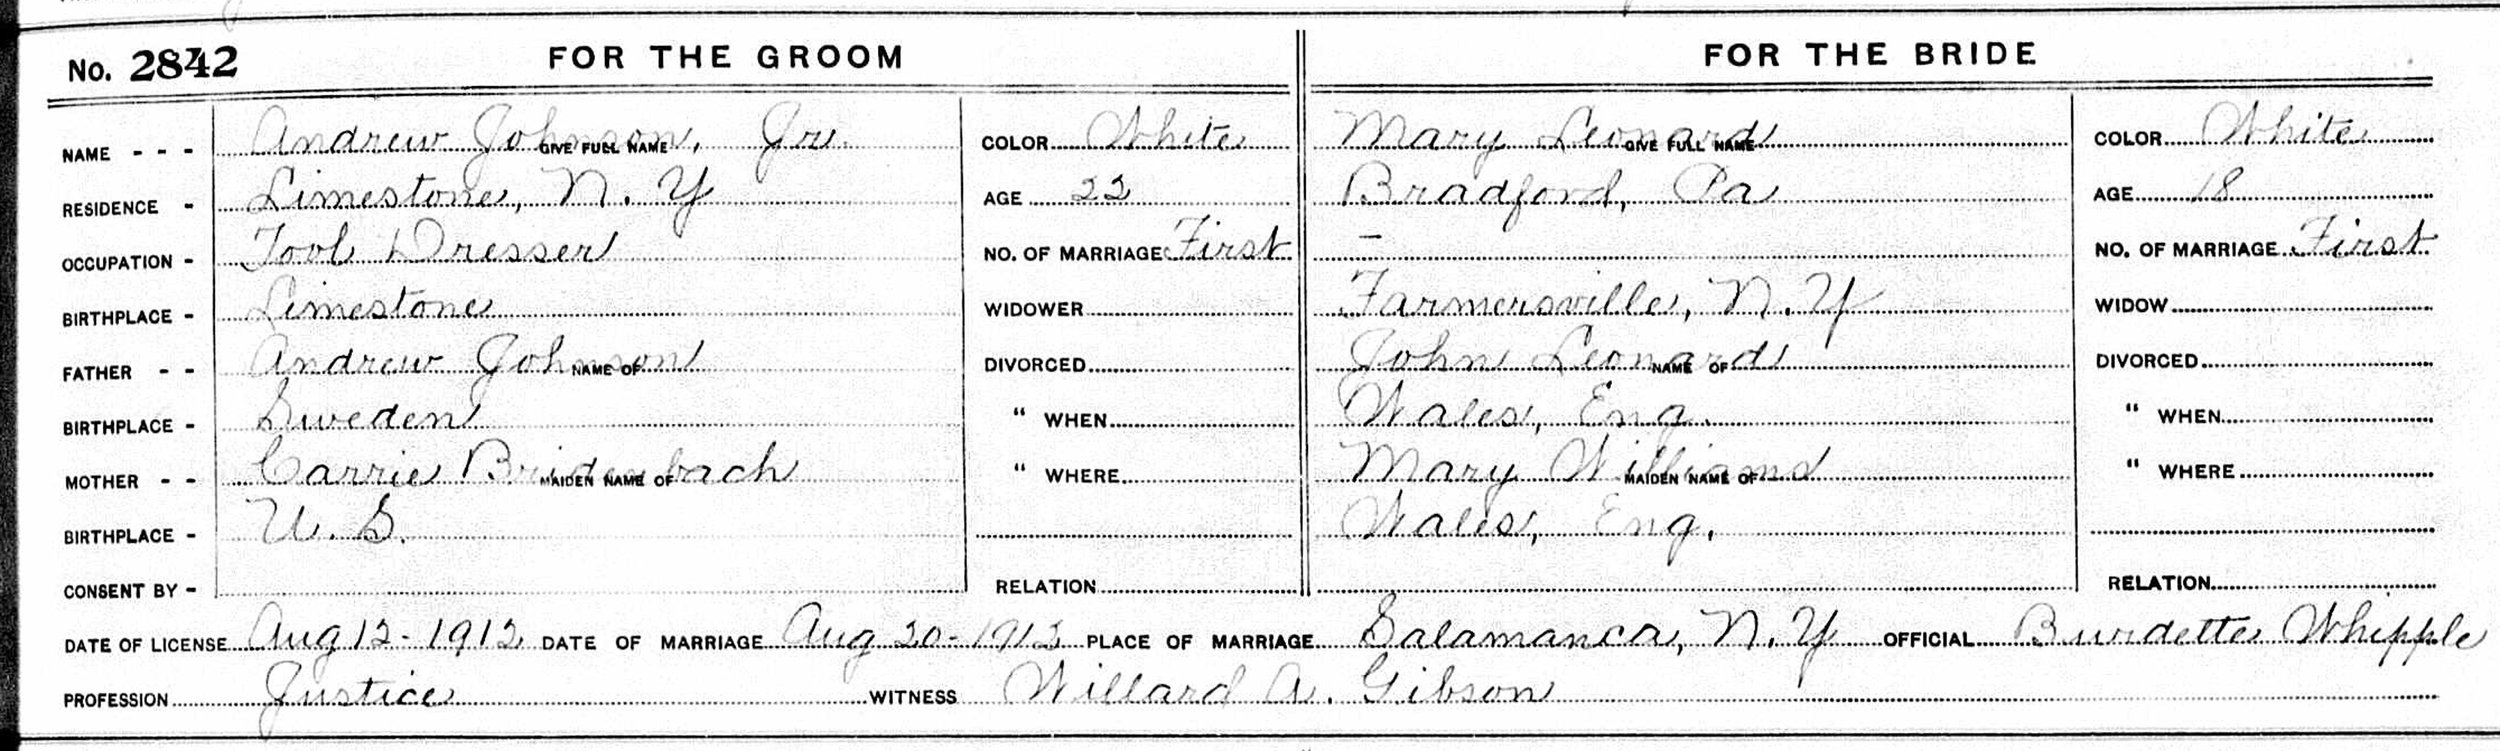 No. 2842 FOR THE GROOM FOR THE BRIDE
NAME - - - Andrew Johnson, Jr. GIVE FULL NAME COLOR White Mary Leonard GIVE FULL NAME COLOR White
RESIDENCE - Limestone, N. Y AGE 22 Bradford, Pa AGE 18
OCCUPATION - Tool Dresser NO. OF MARRIAGE First - NO. OF MARRIAGE First
BIRTHPLACE - Limestone WIDOWER Farmersville, N. Y WIDOW
FATHER - - Andrew Johnson NAME OF DIVORCED John Leonard NAME OF DIVORCED
BIRTHPLACE - Sweden " WHEN Wales, Eng. " WHEN
MOTHER - - Carrie Bridenbach MAIDEN NAME OF " WHERE Mary Williams MAIDEN NAME OF " WHERE
BIRTHPLACE - U. S. Wales, Eng.
CONSENT BY - RELATION RELATION
DATE OF LICENSE Aug 12 - 1912 DATE OF MARRIAGE Aug 20 - 1912 PLACE OF MARRIAGE Salamanca, N. Y OFFICIAL Burdette Whipple
PROFESSION Justice WITNESS Willard A. Gibson